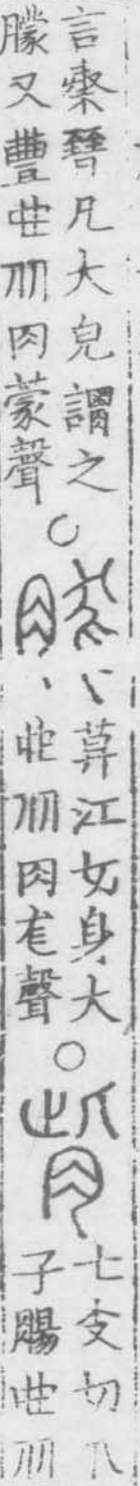 言秦晉凡大皃謂之
朦又豐也从肉蒙聲
○
莽江女身大
也从肉尨聲
○
七支切人
子腸也从